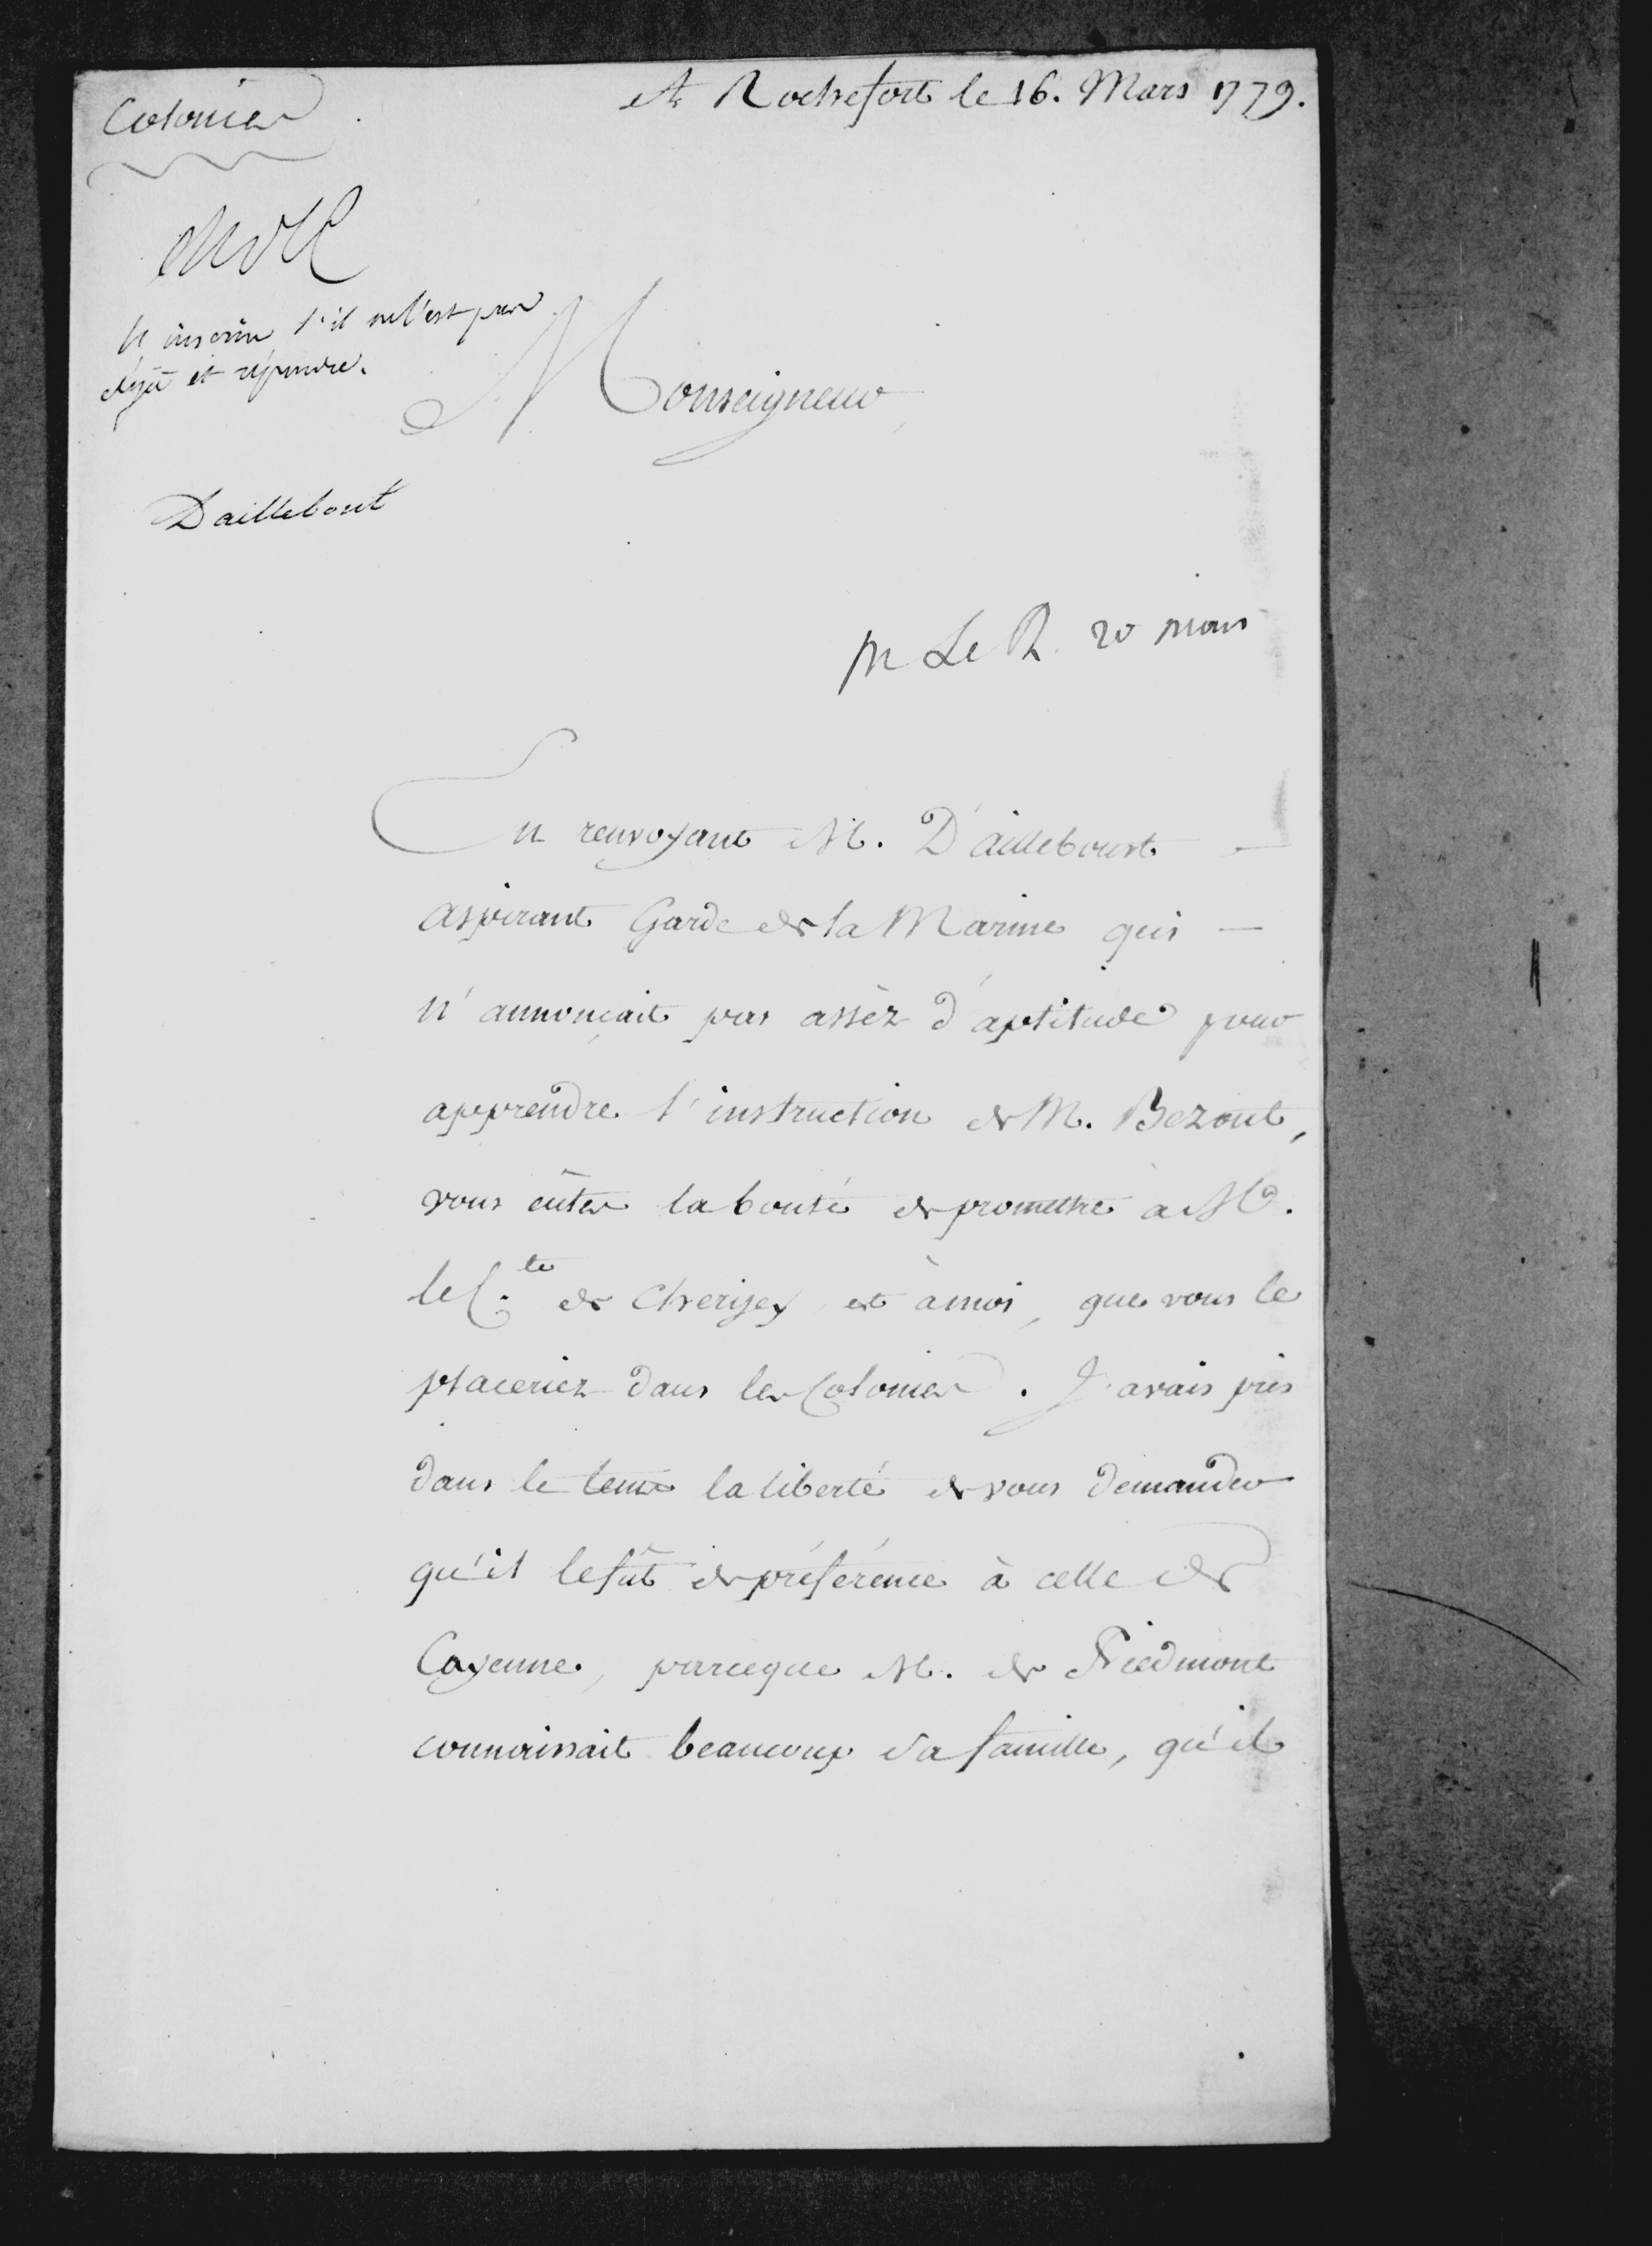 Colonies
A Rochefort le 16. Mars 1779.
L'inscrire s'il ne l'est pas
déja et répondre.
Monseigneur,
Daillebout
M Le R. 20 mars
En renvoyant M. D'ailleboust
aspirant Garde de la Marine qui
n'annonçait pas assèz d'aptitude pour
apprendre l'instruction de M. Bezout,
vous eûtes la bonté de promettre à M.
le C.te de Cherisey et à moi, que vous le
placeriez dans les Colonies. J'avais pris
dans le tems la liberté de vous demander
qu'il le fût de préférence à celle de
Cayenne, parceque M. de Fiedmont
connaissait beaucoup sa famille, qu'il